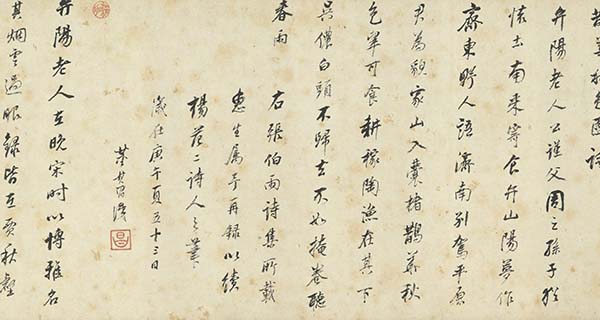 秋色圖詩
弁陽老人公謹父周之孫子猶
懷土南來寄食弁山陽夢作
齊東野人語濟南別駕平原
君為貌家山入囊楮鵲華秋
色翠可食耕稼陶漁在其下
吳儂白頭不歸去不如掩卷聽
春雨
右張伯雨詩集所載
惠生屬予再錄以續
楊范二詩人之筆
歲在庚午夏五十三日
董其昌識
昌
弁陽老人在晚宋時以博雅名
其烟雲過眼錄皆在賈秋壑